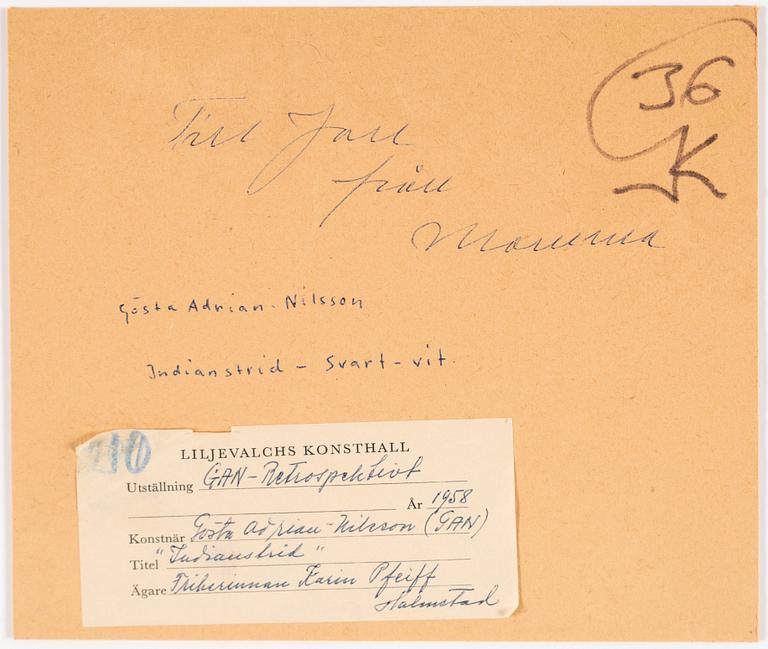 36
K
Till Joll
från
Mamma
Gösta Adrian-Nilsson
Indianstrid - Svart-vit.
210
LILJEVALCHS KONSTHALL
Utställning GAN-Retrospektivt
År 1958
Konstnär Gösta Adrian-Nilsson (GAN)
Titel "Indianstrid"
Ägare Friherinnan Karin Pfeiff
Halmstad